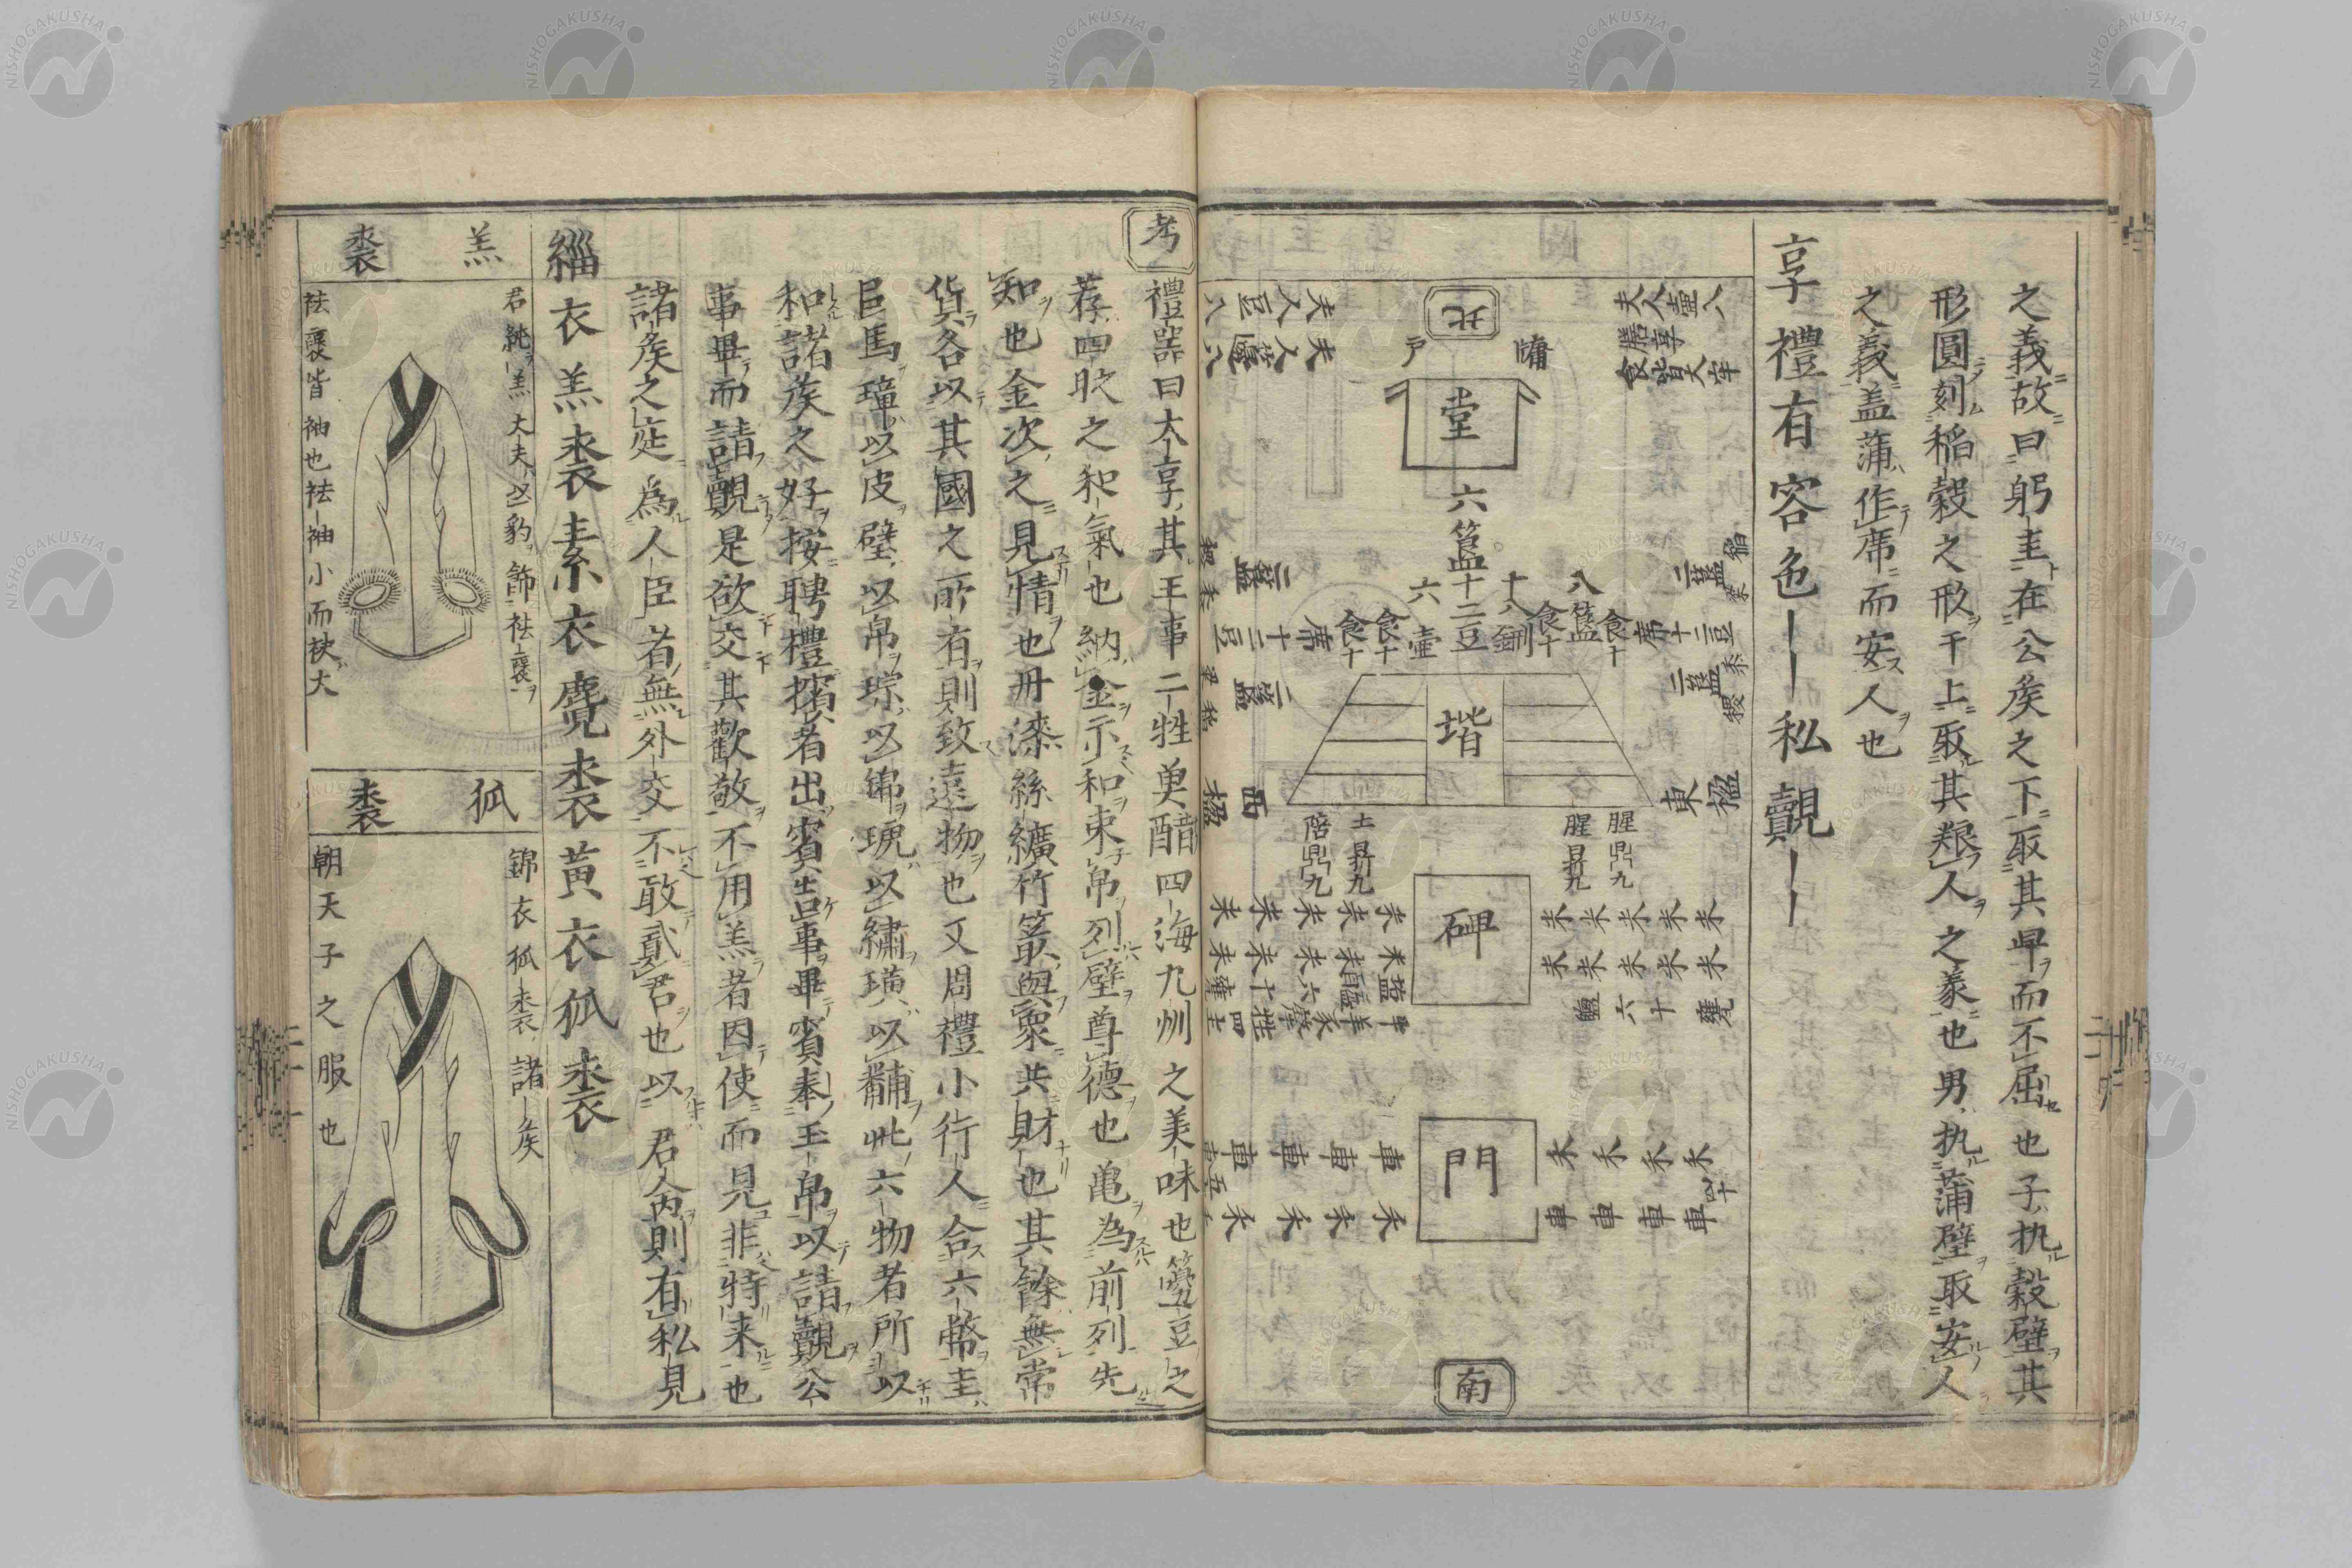 之義故曰躬圭在公矦之下取其甼而不屈也子執穀璧其
形圓刻稻穀之形于上取其粮人之義也男執蒲璧取安人
之義盖蒲作席而安人也
享禮有容色——私覿——
北
夫人壷八
膳宰
戸
牖
夫人豆八
夫人籩八
堂
六簋
六壷
十二豆
十八鉶
八簋
席
十二豆
二簋
階
東楹
西楹
腥鼎九
腥鼎九
陪鼎九
碑
門
南
考
禮器曰大享其王事二牲奠醋四海九州之美味也籩豆之
荐四時之和氣也納金示和束帛列璧尊德也亀為前列先
知也金次之見情也冊漆絲纊竹箭與衆共財也其餘無常
貨各以其國之所有則致遠物也又周禮小行人合六幣圭
以馬璋以皮璧以帛琮以錦琥以繡璜以黼此六物者所以
和諸矦之好按聘禮擯者出賓告事畢賓奉王帛以請覿公
事畢而請覿是欲交其歡敬不用羔者因使而見非特来也
諸矦之庭為人臣者無外交不敢貳君也以君命則有私見
緇衣羔裘素衣麑裘黄衣狐裘
羔裘
君純羔大夫以豹飾袪褎
袪褎皆袖也袪袖小而袂大
狐裘
錦衣狐裘諸矦
朝天子之服也
NISHOGAKUSHA